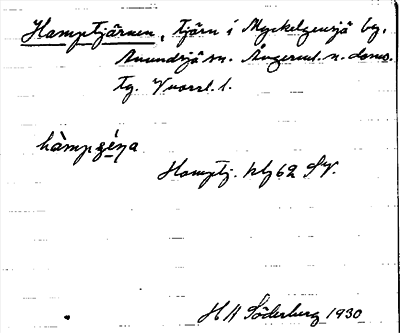 Hamptjärnen, tjärn i Myckelgensjö by,
Anundsjö sn. Ångerml. n. doms.
Tg. Vvorsl. 1.
hàmpȿéṇa
Hamptj. kbg 62 SV.
H H Söderberg 1930